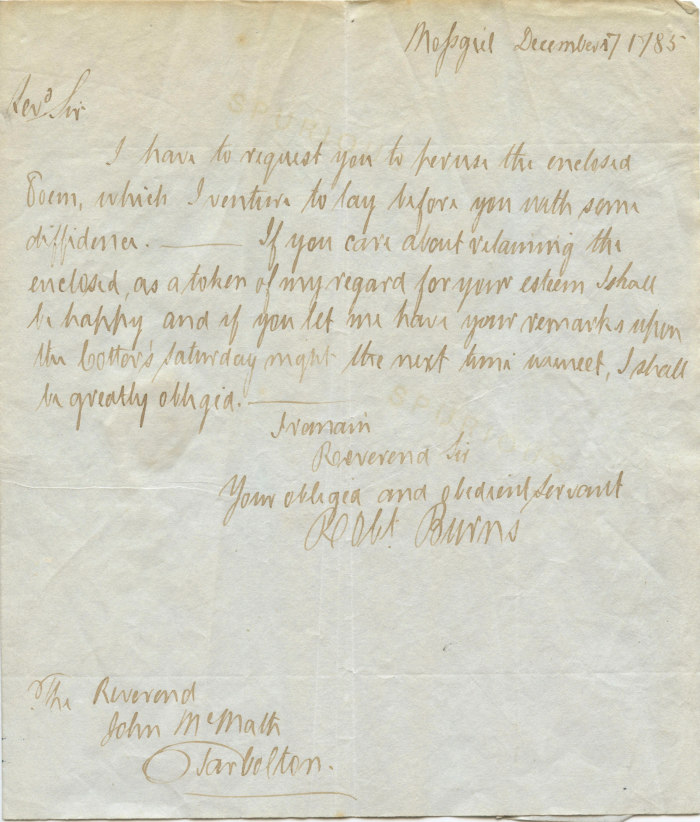 Mossgiel December 17 1785
Revd Sir
SPURIOUS
I have to request you to peruse the enclosed
Poem, which I venture to lay before you with some
diffidence. — If you care about retaining the
enclosed, as a token of my regard for your esteem I shall
be happy and if you let me have your remarks upon
the Cottor's Saturday night the next time we meet, I shall
be greatly obliged. —
SPURIOUS
I remain
Reverend Sir
Your obliged and obedient servant
Robt Burns
The Reverend
John McMath
Tarbolton.